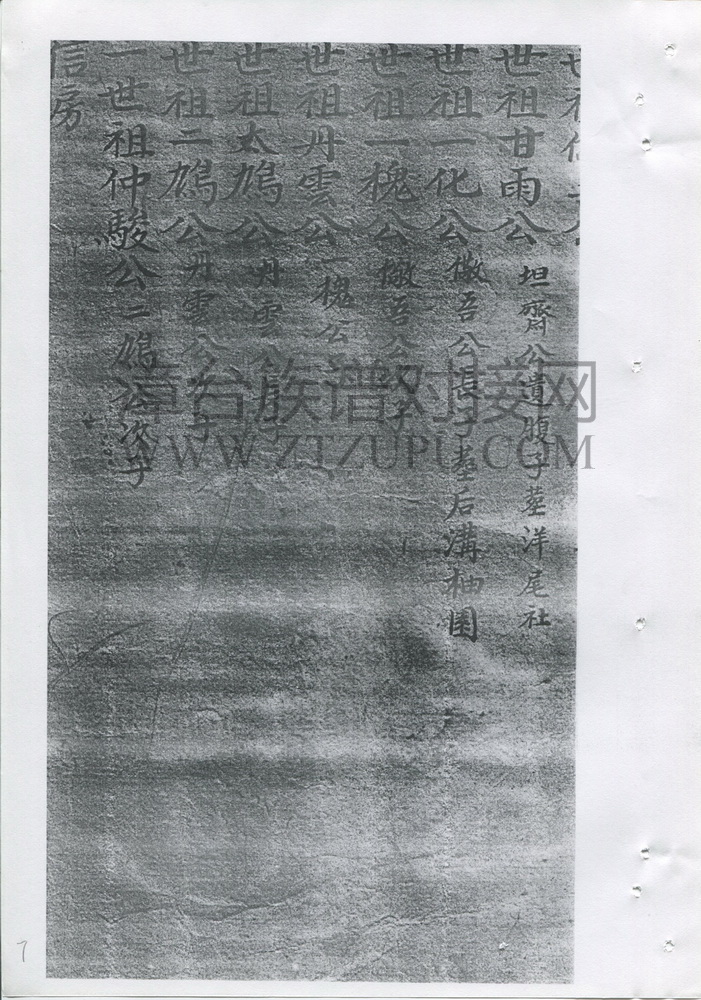 世祖
世祖甘雨公 坦齋公遺腹子塟洋尾社
世祖一化公 儆吾公長子塟后溝柚園
世祖一槐公 儆吾公次子
世祖丹雲公 一槐公
世祖太鳩公 丹雲公長子
世祖二鳩公 丹雲公次子
一世祖仲駿公 二鳩公次子
信房
漳台族谱对接网
WWW.ZTZUPU.COM
7